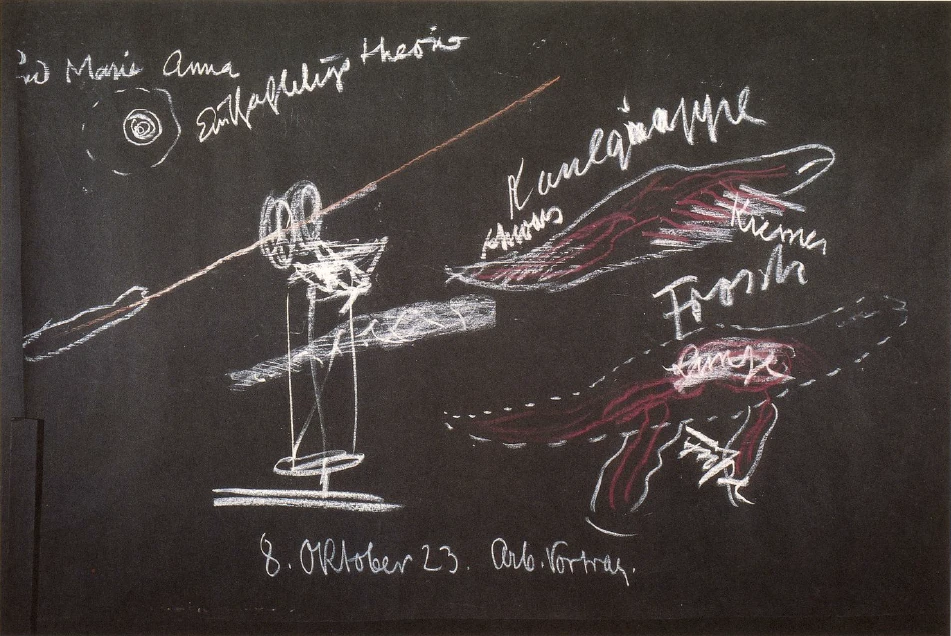 Marie Anna
theorie
Kaulquappe
Schwanz
Kiemen
Frosch
Lunge
8. Oktober 23. Arb. Vortrag.